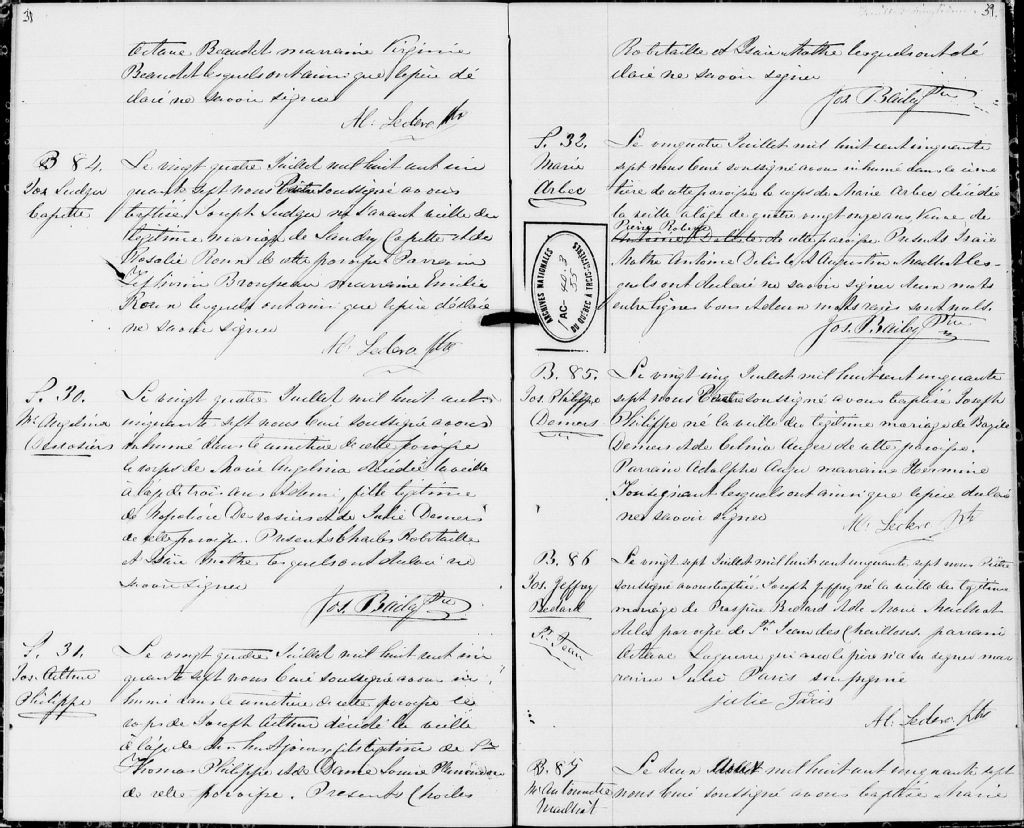 31
Octave Beaudet marraine Virginie
Beaudet lesquels ont ainsi que le père dé
claré ne savoir signer
Al. Leclerc ptre
B 84.
Jos Ludger
Capette
Le vingt quatre Juillet mil huit cent cin
quante sept nous soussigné avons
baptisé Joseph Ludger né l'avant veille du
légitime mariage de Sandry Capette et de
Rosalie de cette paroisse Parrain
Zéphirin Brousseau marraine Emilie
lesquels ont ainsi que le père déclaré
ne savoir signer
Al. Leclerc ptre
S. 30.
Mie Angelina
Desrosiers
Le vingt quatre Juillet mil huit cent
cinquante sept nous Curé soussigné avons
inhumé dans le cimetière de cette paroisse
le corps de Marie Angelina décédée la veille
à l'âge de trois ans et demi, fille légitime
de Napoléon Desrosiers et de Julie Demers
de cette paroisse. Présents Charles Robitaille
et Isaïe Mathe lesquels ont déclaré ne
savoir signer
Jos. Bailey Ptre
S. 31.
Jos. Arthur
Philippe
Le vingt quatre Juillet mil huit cent cin
quante sept nous Curé soussigné avons in
humé dans le cimetière de cette paroisse le
corps de Joseph Arthur décédé la veille
à l'âge de jours, fils légitime de
Thomas Philippe et de Dame Louise
de cette paroisse. Présents Charles
39.
Robitaille et Isaïe Mathe lesquels ont dé
claré ne savoir signer
Jos. Bailey Ptre
S. 32.
Marie
Arbec
Le vingquatre Juillet mil huit cent cinquante
sept nous Curé soussigné avons inhumé dans le cime
tière de cette paroisse le corps de Marie Arbec décédée
la veille à l'âge de quatre vingt onze ans, Veuve de
Pierre
Antoine Delisle de cette paroisse. Présents Isaïe
Mathe Antoine Delisle et Augustin Mailhot les
quels ont déclaré ne savoir signer deux mots
entrelignes bons et deux mots rayés sont nuls.
Jos. Bailey Ptre
ARCHIVES NATIONALES
AC- 40-3
55
DU QUÉBEC À TROIS-RIVIÈRES
B. 85.
Jos. Philippe
Demers
Le vingt cinq Juillet mil huit cent cinquante
sept nous soussigné avons baptisé Joseph
Philippe né la veille du légitime mariage de Bazile
Demers et de Celina Auger de cette paroisse.
Parrain Adolphe Auger marraine Hermine
Tousignant lesquels ont ainsi que le père déclaré
ne savoir signer
Al. Leclerc Ptre
B. 86
Jos. Jeffrey
Bedard
St. Jean
Le vingt sept Juillet mil huit cent cinquante sept nous Prêtre
soussigné avons baptisé Joseph Jeffrey né la veille du légitime
mariage de Prospère Bedard et de Marie Mailhot
de la paroisse de St Jean des Chaillons. parrain
Octave Laguerre qui avec le père n'a su signer mar
raine Julie Paris soussignée
Julie Paris
Al. Leclerc ptre
B. 87
Me Antoinette
Mailhot
Le deux Août mil huit cent cinquante sept
nous Curé soussigné avons baptisé Marie